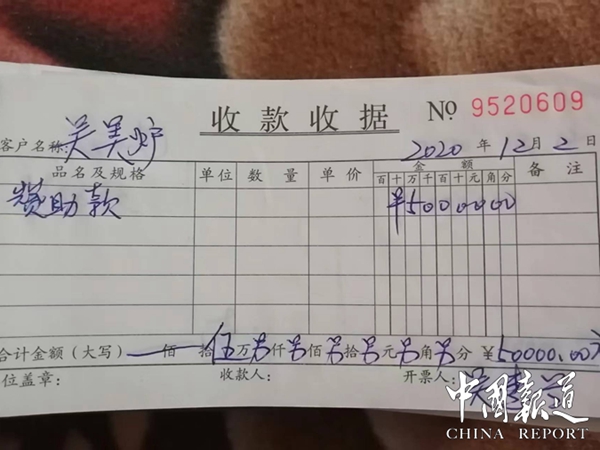 收款收据 № 9520609
客户名称:吴美炉 2020年12月2日
品名及规格 单位 数量 单价 金额 备注
百十万千百十元角分
赞助款 ¥5000000
合计金额(大写) 佰 拾伍万另仟另佰另拾另元另角另分 ¥50000.00元
位盖章: 收款人: 开票人:吴
中国报道
CHINA REPORT